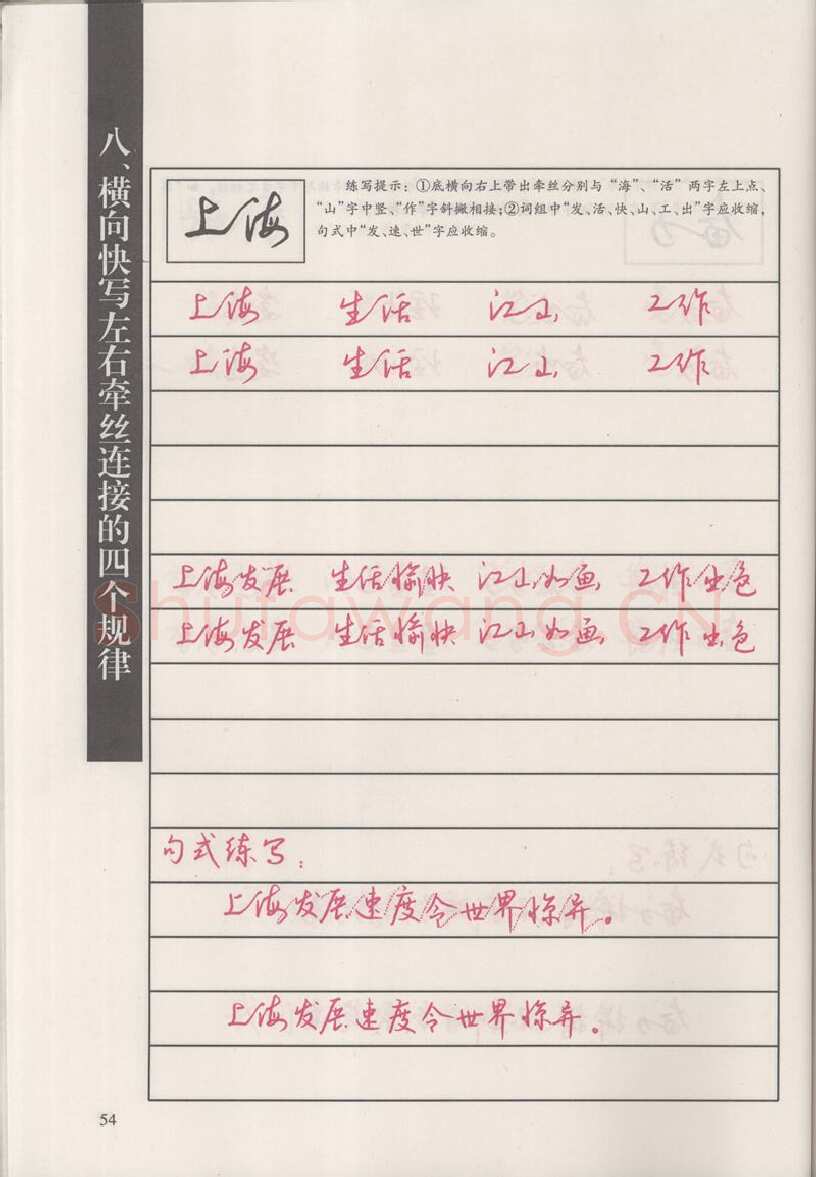 八、横向快写左右牵丝连接的四个规律
上海
练写提示：①底横向右上带出牵丝分别与“海”、“活”两字左上点、
“山”字中竖、“作”字斜撇相接；②词组中“发、活、快、山、工、出”字应收缩，
句式中“发、速、世”字应收缩。
上海 生活 江山 工作
上海 生活 江山 工作
上海发展 生活愉快 江山如画 工作出色
上海发展 生活愉快 江山如画 工作出色
Shufawang.CN
句式练写：
上海发展速度令世界惊异。
上海发展速度令世界惊异。
54